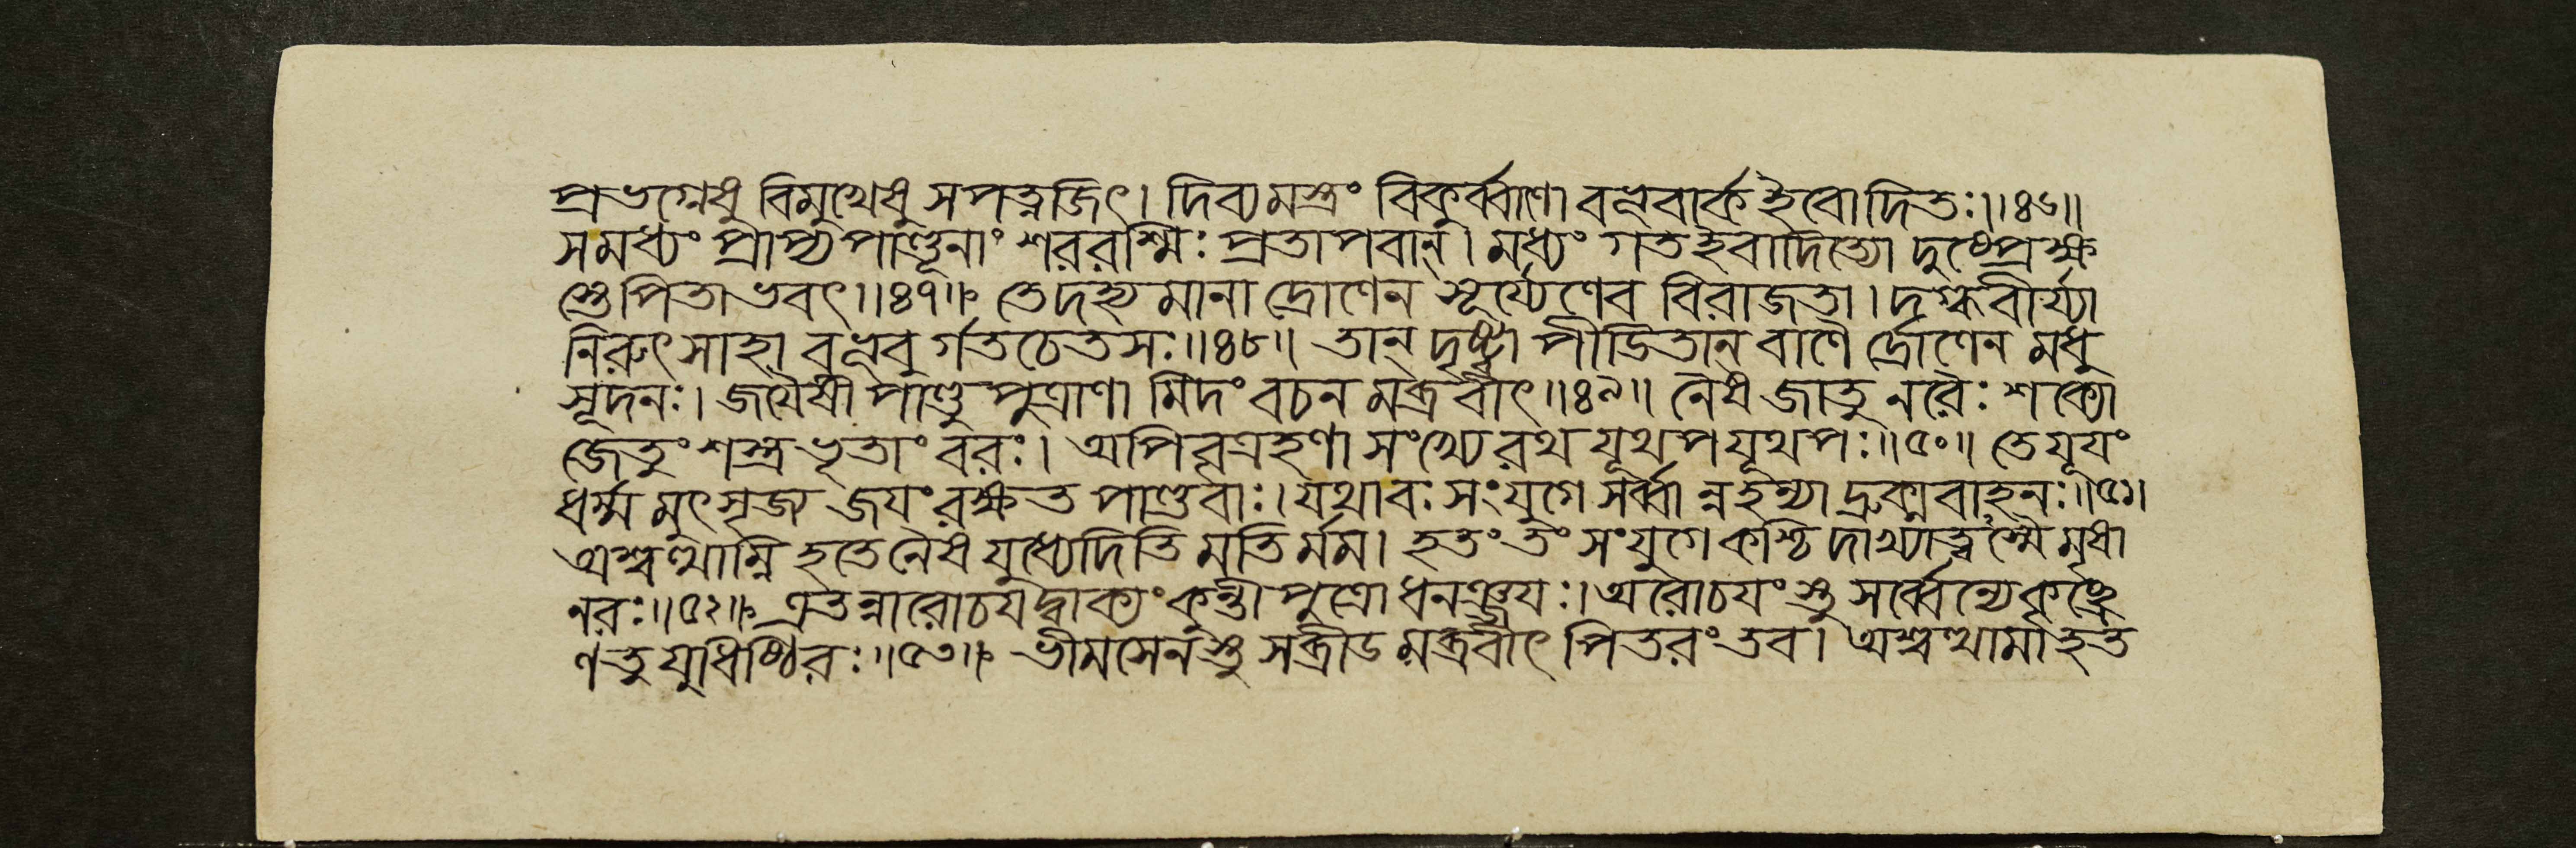 প্রভগ্নেষু বিমুখেষু সপত্নজিৎ। দিব্যমস্ত্রং বিকুর্ব্বাণো বভূবার্ক ইবোদিতঃ॥৪৬॥
সমধ্যং প্রাপ্য পাণ্ডূনাং শররশ্মিঃ প্রতাপবান্। মধ্যং গত ইবাদিত্যো দুষ্প্রেক্ষ
স্তে পিতাভবৎ॥৪৭॥ তে দহ্যমানা দ্রোণেন সূর্য্যেণেব বিরাজতা। দগ্ধবীর্য্যা
নিরুৎসাহা বভূবু র্গতচেতসঃ॥৪৮॥ তান্ দৃষ্ট্বা পীডিতান্ বাণৈ র্দ্রোণেন মধু
সূদনঃ। জযৈষী পাণ্ডুপুত্রাণা মিদং বচন মব্রবীৎ॥৪৯॥ নৈষ জাতু নরৈঃ শক্যো
জেতুং শস্ত্রভৃতাং বরঃ। অপি বৃত্রহণা সংখ্যে রথযূথপযূথপঃ॥৫০॥ তে যূযং
ধর্ম্ম মুৎসৃজ্য জযং রক্ষত পাণ্ডবাঃ। যথা বঃ সংযুগে সর্ব্বা ন্নহন্যা দ্রুক্মবাহনঃ॥৫১॥
অশ্বত্থাম্নি হতে নৈষ যুধ্যেদিতি মতির্মম। হতং তং সংযুগে কশ্চি দাখ্যাত্বস্মৈ মৃষা
নরঃ॥৫২॥ এতন্নারোচযদ্বাক্যং কুন্তীপুত্রো ধনঞ্জযঃ। অরোচযংস্তু সর্ব্বেন্যে কৃচ্ছ্রে
ণ তু যুধিষ্ঠিরঃ॥৫৩॥ ভীমসেনস্তু সব্রীড মব্রবীৎ পিতরং তব। অশ্বত্থামা হত